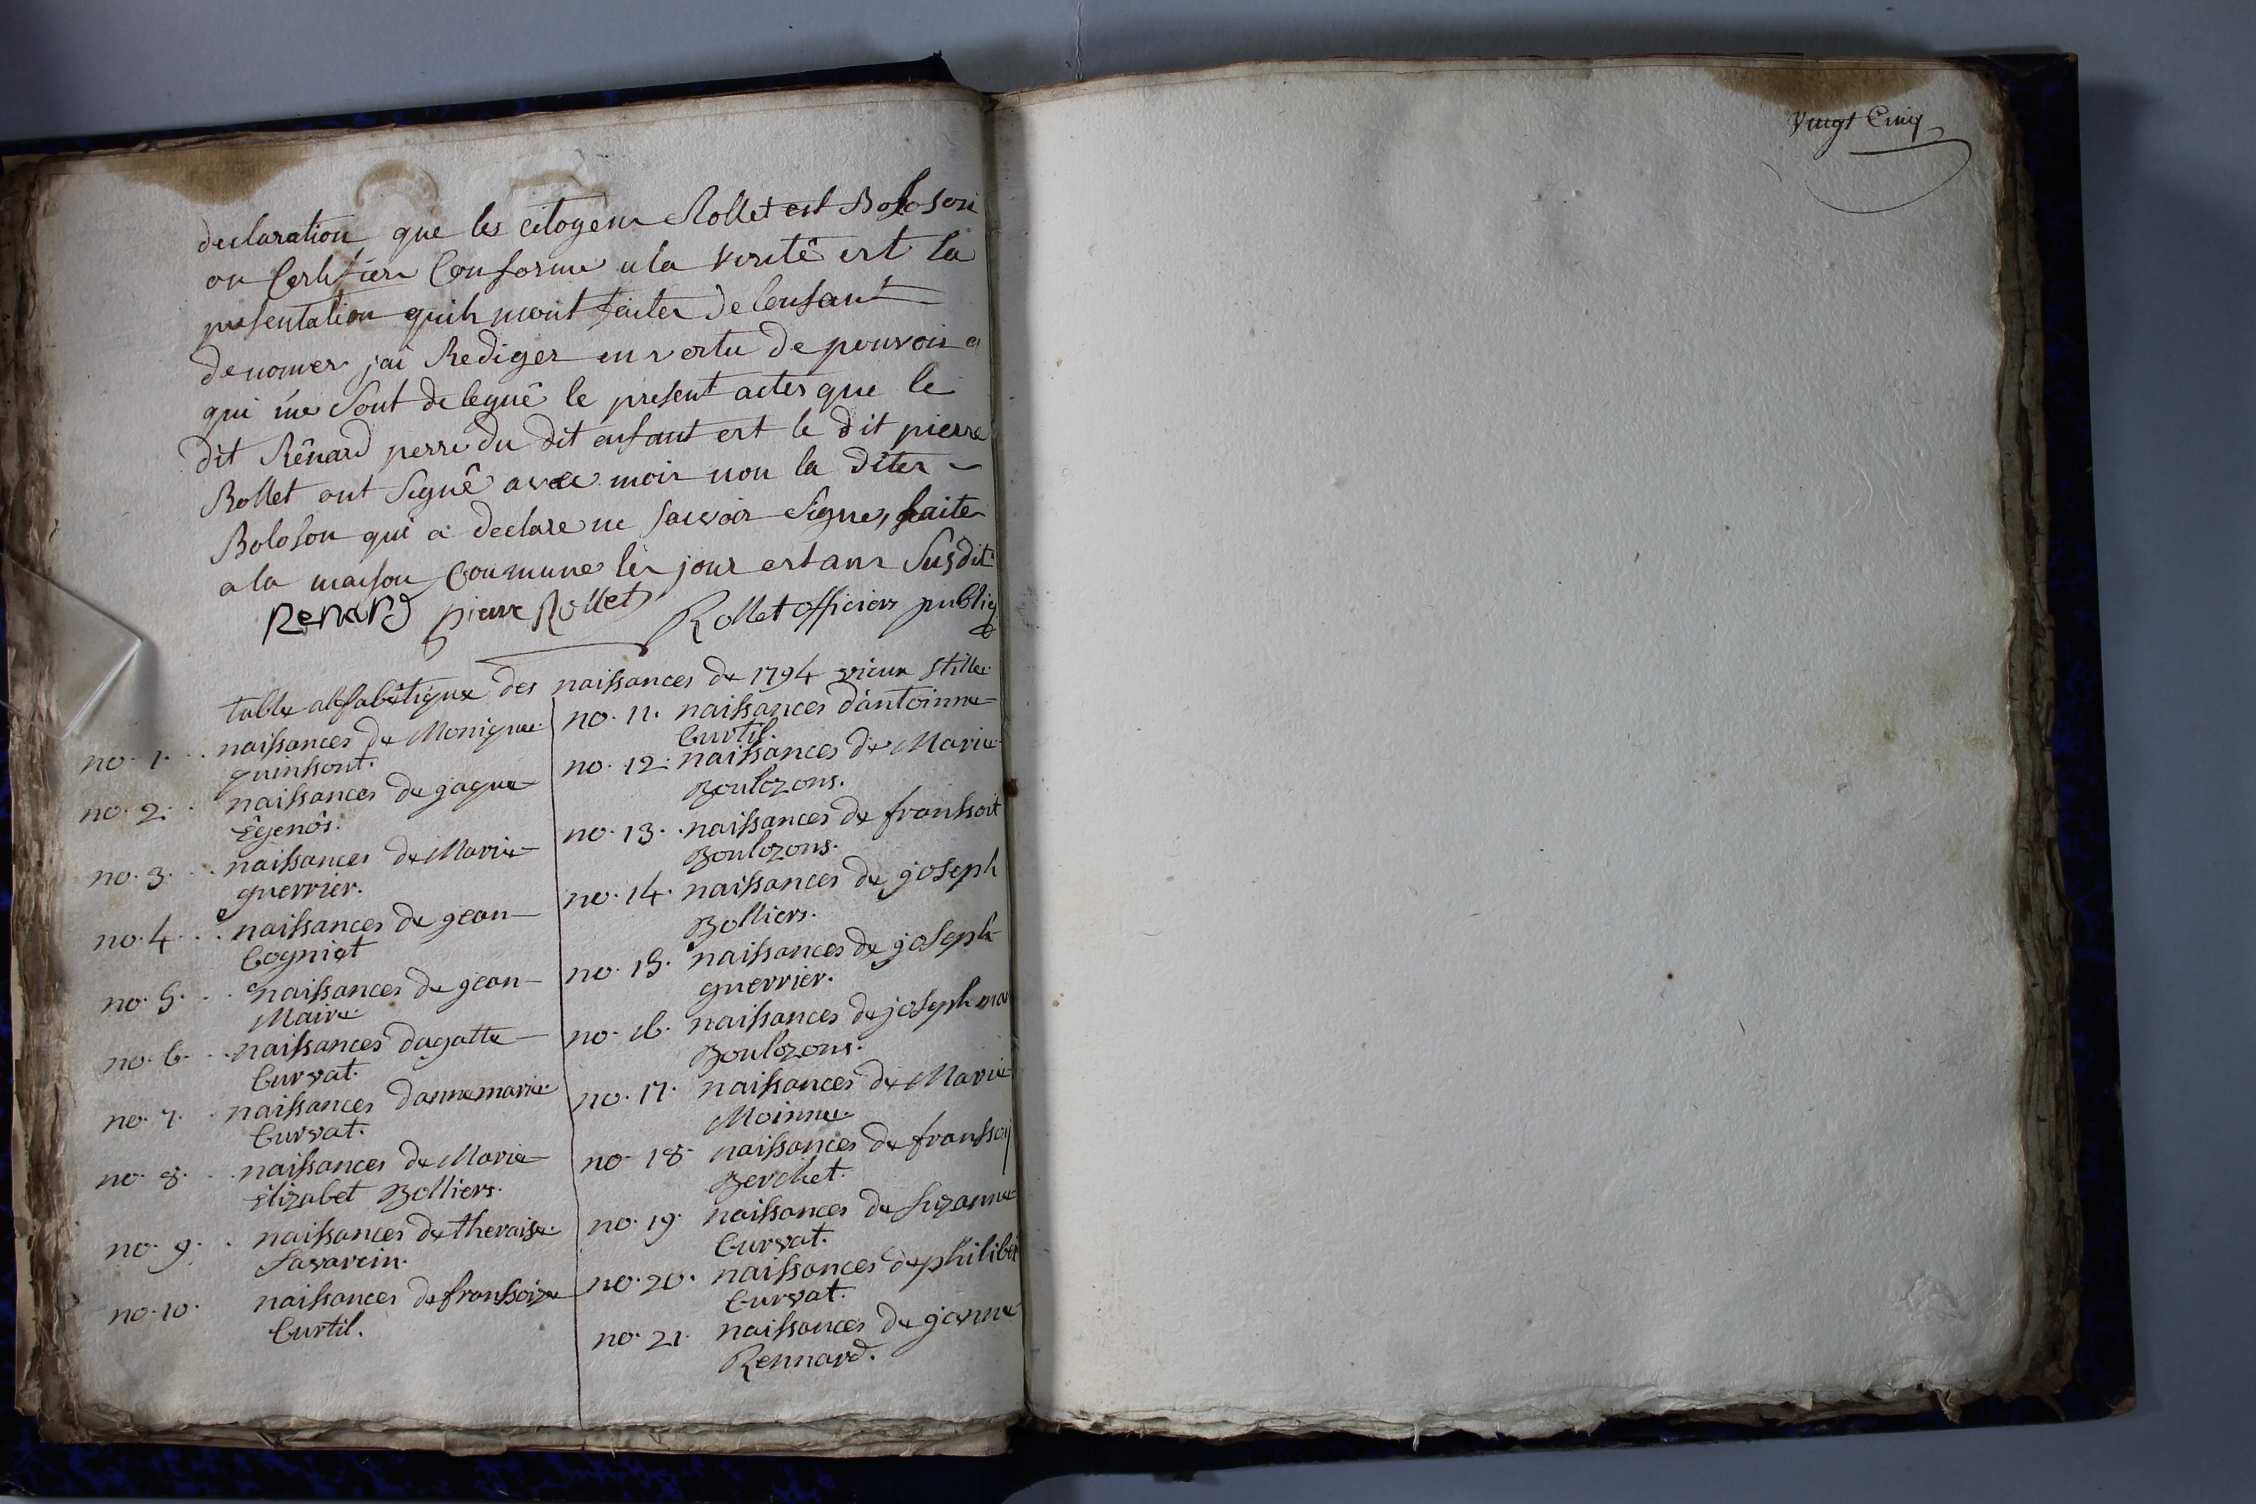 declaration que les citoyens Rollet est Boloson
on Certifier Conforme a la Verité est la
presentation quils mont faites de lenfant
denomer jai Rediger en vertu de pouvoir
qui me sont delegué le present actes que le
dit Rênard perre du dit enfant est le dit pierre
Rollet ont signé avec moir non la dites
Boloson qui a declare ne savoir signer, faite
a la maison Commune les jour est ans susdit
Renard pierre Rollet Rollet officiers publiq
table alfabêtique des naissances de 1794 vieux stille
no. 1. naissances de Monique
quinssont.
no. 2. naissances de gaque
no. 3. naissances de Marie
guerrier.
no. 4. naissances de gean
Cogniat
no. 5. naissances de gean
Maire
no. 6. naissances dagatte
Curvat.
no. 7. naissances dannemarie
Curvat.
no. 8. naissances de Marie
êlizabet Bolliers.
no. 9. naissances de theraise
Savarein.
no. 10. naissances de franssoize
Curtil.
no. 11. naissances dantoinne
Curtil.
no. 12. naissances de Marie
Boulozons.
no. 13. naissances de franssoit
Boulozons.
no. 14. naissances de joseph
Bolliers.
no. 15. naissances de joseph
guerrier.
no. 16. naissances de joseph mar
Boulozons.
no. 17. naissances de Marie
Moinne
no. 18. naissances de franssoi
Berchet.
no. 19. naissances de suzanne
Curvat.
no. 20. naissances de philiber
Curvat.
no. 21. naissances de ganne
Rennard.
Vingt Cinq